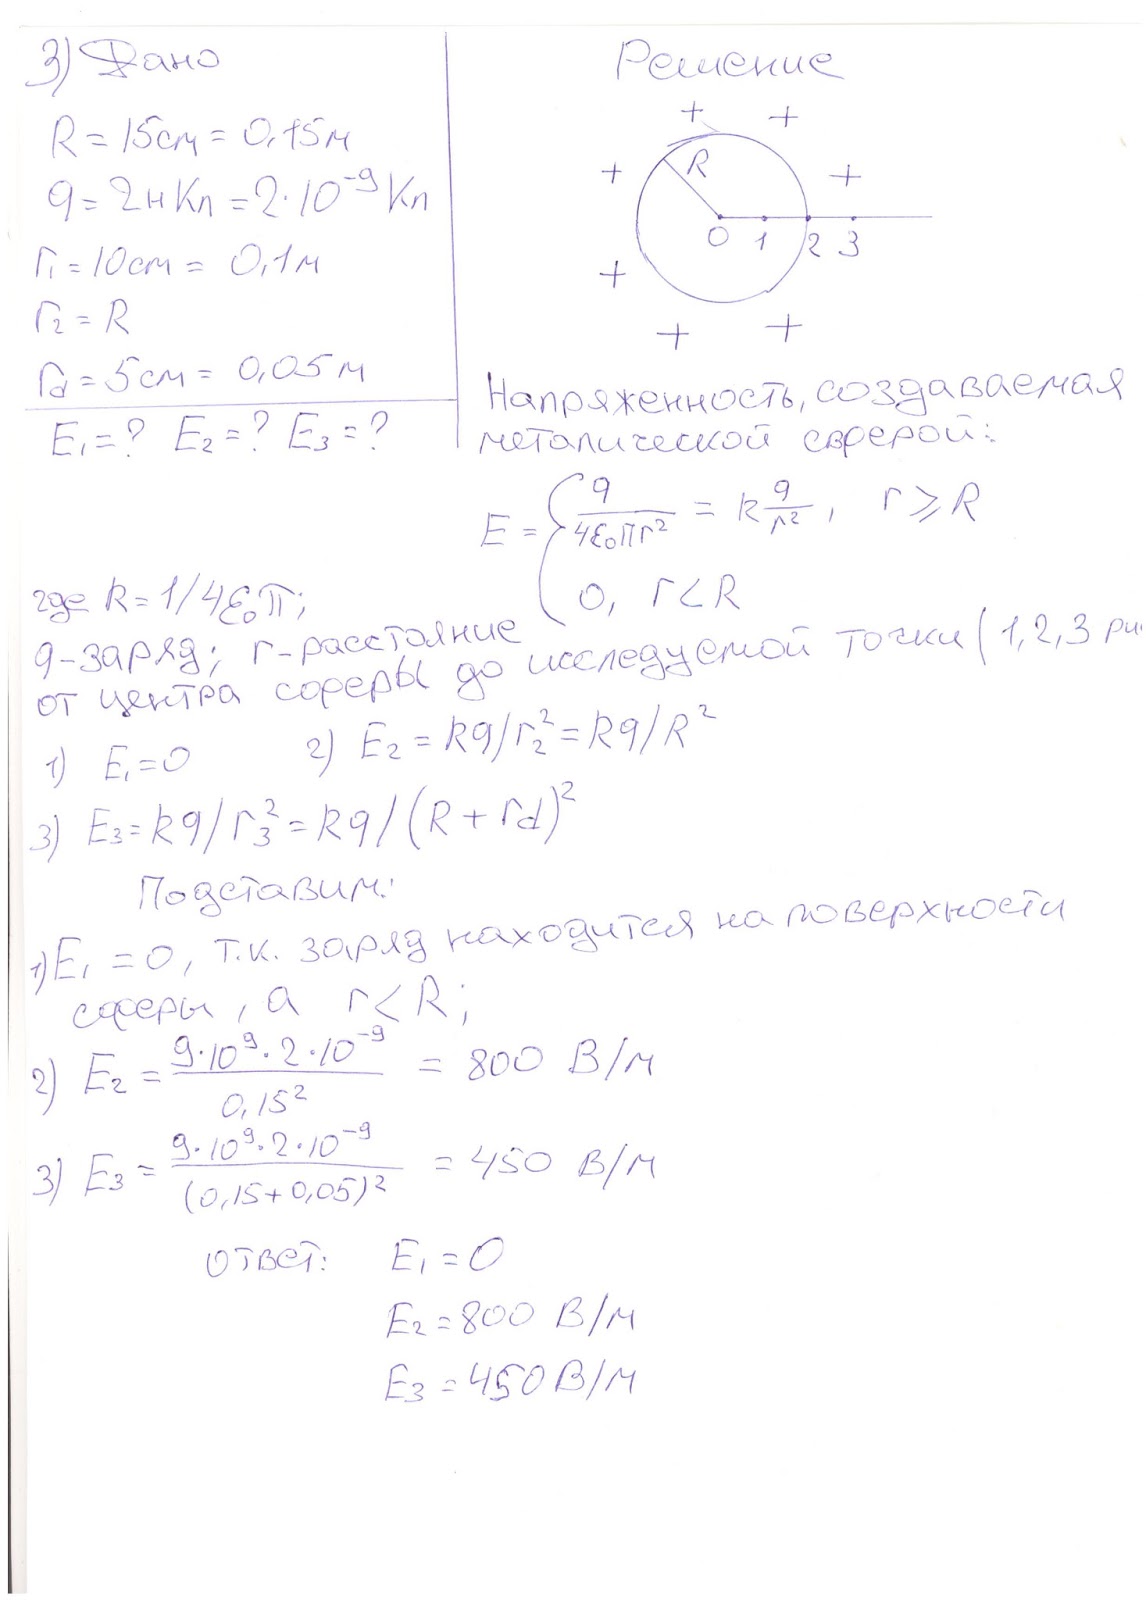 3) Дано
R = 15см = 0,15м
q = 2нКл = 2·10⁻⁹ Кл
r₁ = 10см = 0,1м
r₂ = R
rd = 5см = 0,05м
E₁ = ? E₂ = ? E₃ = ?
Решение
+ +
+ R +
0 1 2 3
+
+ +
Напряженность, создаваемая
металической сферой:
E = { q/4ε₀πr² = k q/r², r ⩾ R
0, r < R
где k = 1/4ε₀π;
q-заряд; r-расстояние
от центра сферы до исследуемой точки (1,2,3 рис
1) E₁ = 0 2) E₂ = kq/r₂² = kq/R²
3) E₃ = kq/r₃² = kq/(R + rd)²
Подставим:
1) E₁ = 0, т.к. заряд находится на поверхности
сферы, а r < R;
2) E₂ = 9·10⁹·2·10⁻⁹/0,15² = 800 В/м
3) E₃ = 9·10⁹·2·10⁻⁹/(0,15+0,05)² = 450 В/м
ответ: E₁ = 0
E₂ = 800 В/м
E₃ = 450 В/м